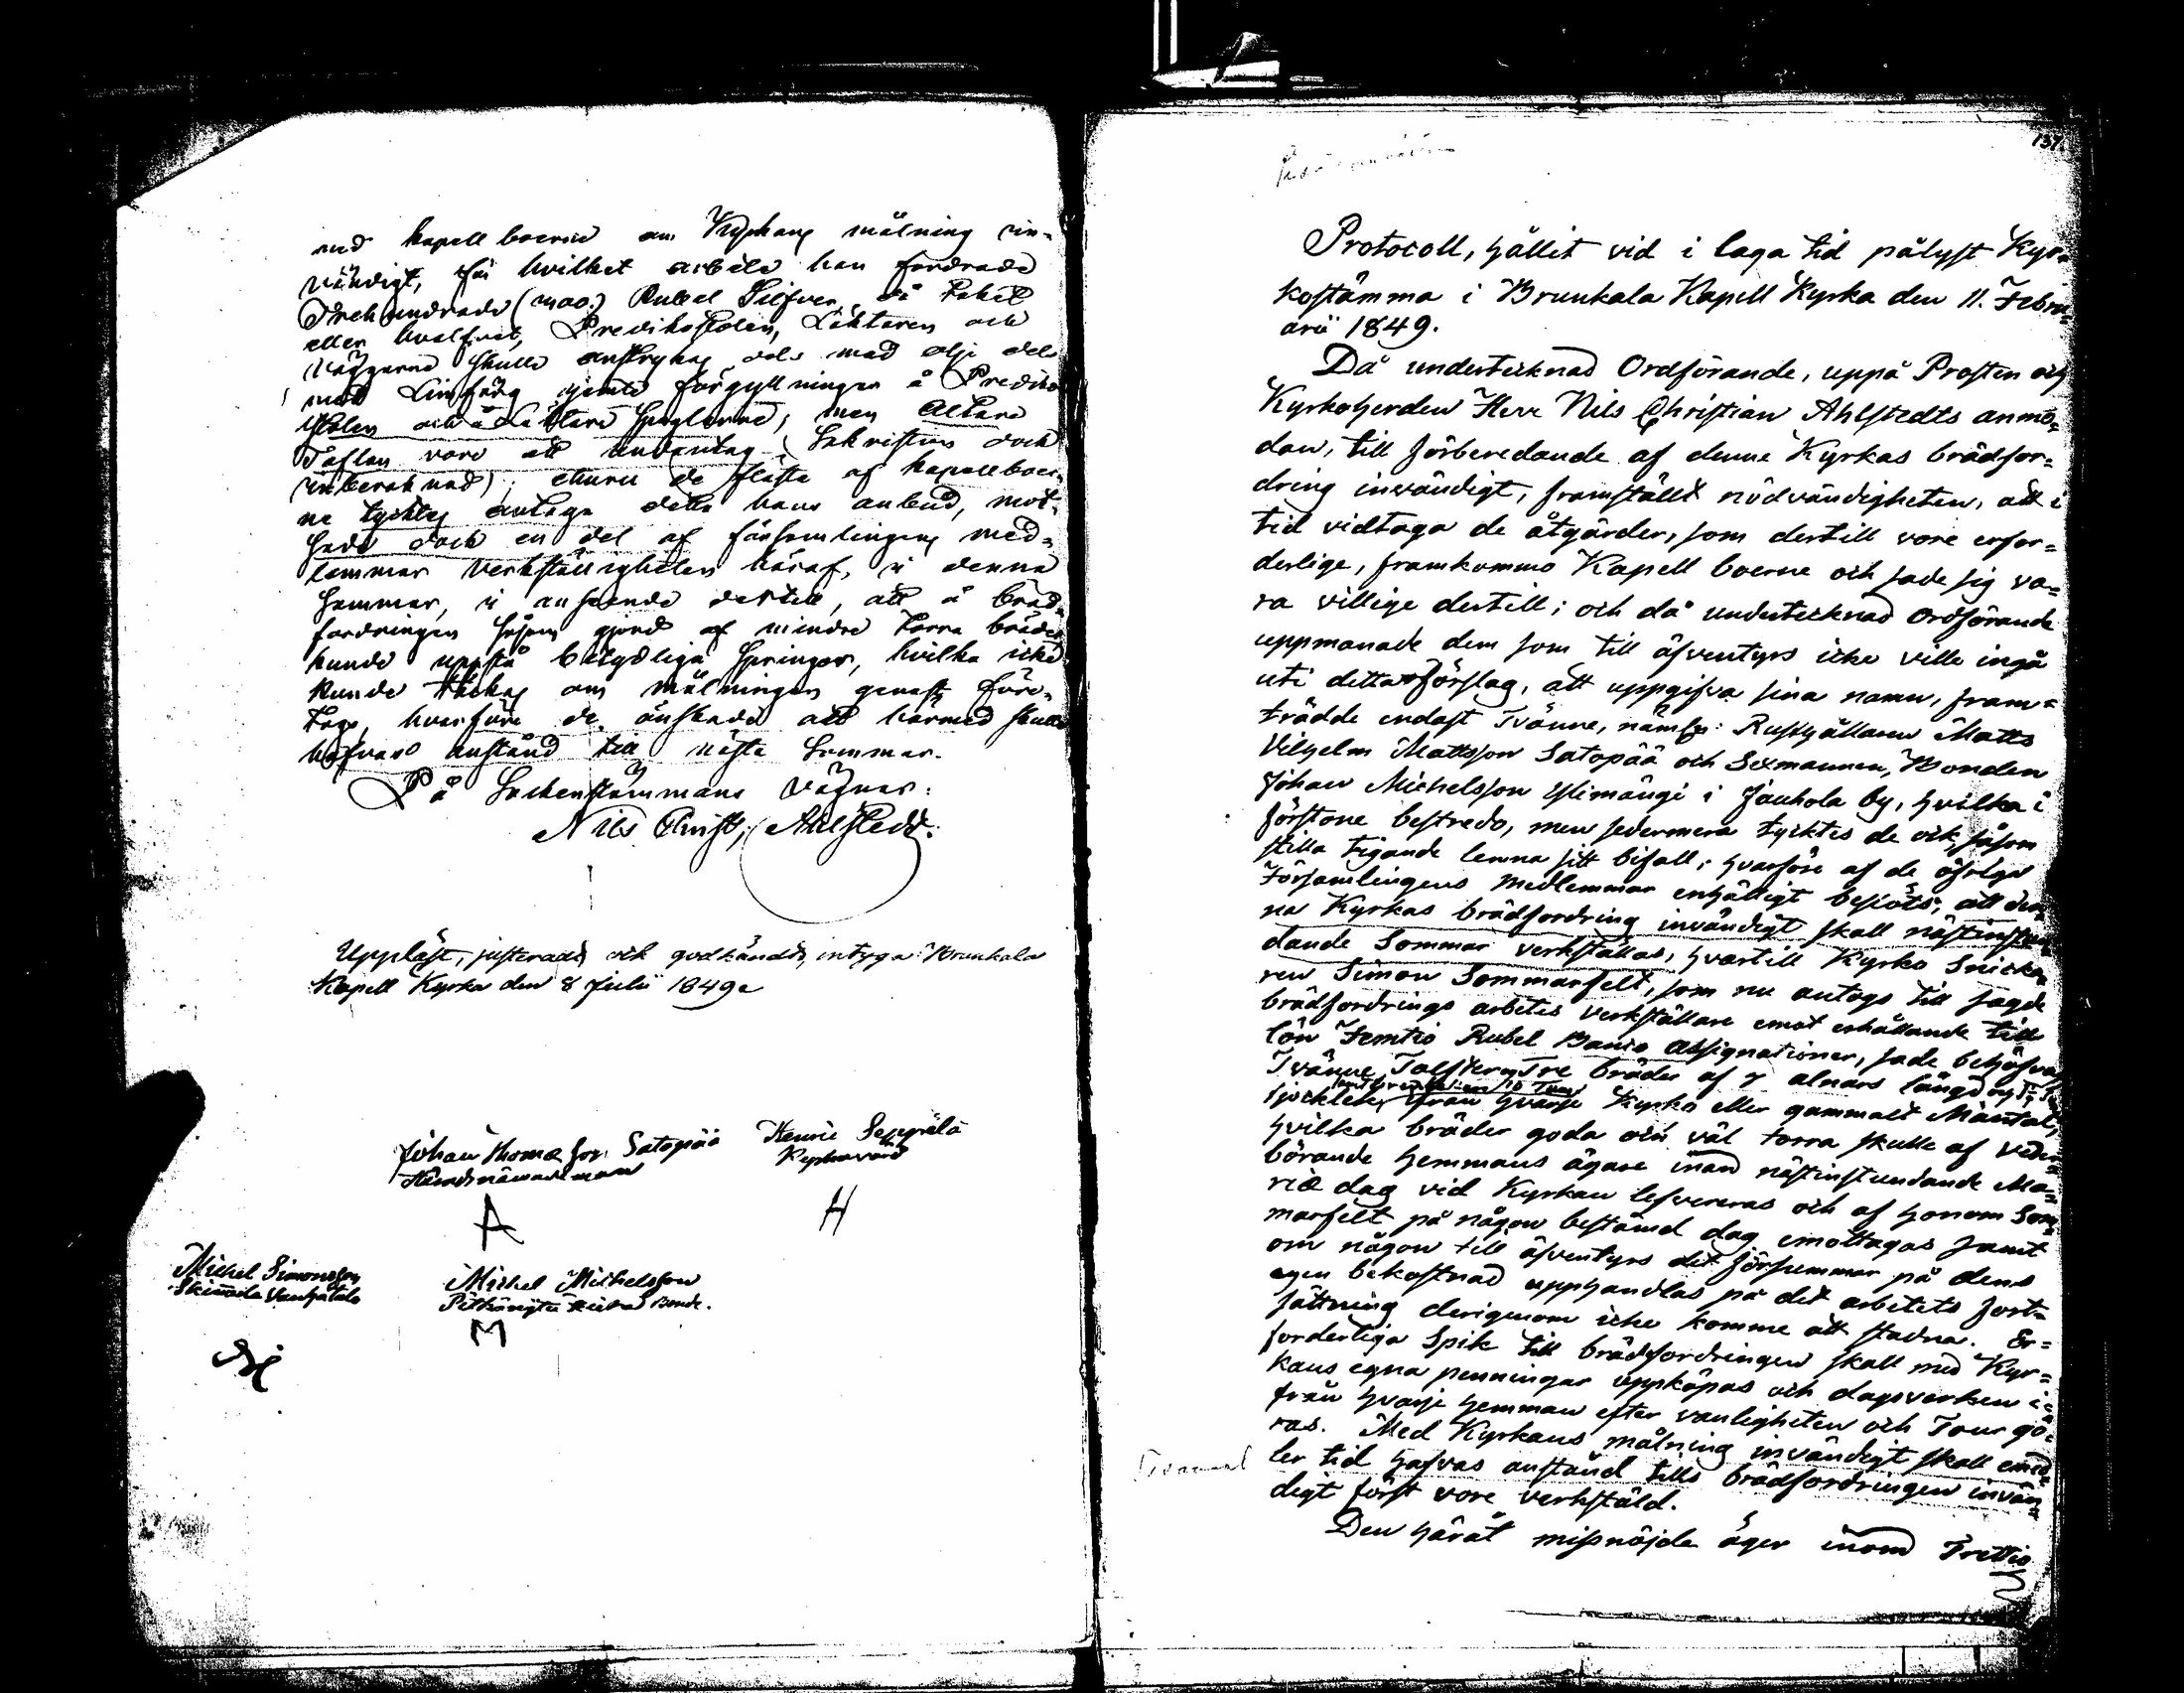 med kapellboerne om Kyrkans målning in-
vändigt, för hvilket arbete han fordrade
Trehundrade Rubel Silfver, då taket
eller hvalfvet, Predikstolen, Läktaren och
väggarne skulle anstrykas dels med olje dels
med Limfärg jemte förgyllningen å Prediko
stolen och å Läktare speglarne, men Altare
Taflan vore att undantag (Sakristian dock
inberäknad); churu de flesta af kapellboer-
ne tycktes antaga detta hans anbud, mot-
sade dock en del af församlingens med-
lemmar verkställigheten häraf, i denna
sommar, i anseende dertill, att å bräd-
fordringen såsom gjord af mindre torra bräder
kunde uppstå betydliga springor, hvilka icke
kunde täckas om målningen genast före-
togs, hvarföre de önskade att härmed skulle
hafvas anstånd till nästa sommar.
På Sockenstämmans vägnar:
Nils Christ. Ahlstedt.
Uppläst, justeradt och godkändt, intyga Brunkala
Kapell Kyrka den 8 Julii 1849.
Johan Thomasson Satopää
Häradsnämndeman
A
Henric Seppälä
Kyrkovärd
H
Michel Simonsson
Skinnala Vanhatalo
Michel Michelsson
Bonde.
M
137.
Protocoll, hållit vid i laga tid pålyst Kyr-
kostämma i Brunkala Kapell Kyrka den 11. Febru-
arii 1849.
Då undertecknad Ordförande, uppå Prosten och
Kyrkoherden Herr Nils Christian Ahlstedts anmo-
dan, till förberedande af denne Kyrkas brädfor-
dring invändigt, framställt nödvändigheten, att i
tid vidtaga de åtgärder, som dertill vore erfor-
derlige, framkommo Kapell boerne och sade sig va-
ra villige dertill; och då undertecknad Ordförande
uppmanade dem som till äfventyrs icke ville ingå
uti detta förslag, att uppgifva sina namn, fram-
trädde endast Tvänne, nämln: Rusthållaren Matts
Vilhelm Mattsson Satopää och Sexmannen, Bonden
Johan Michelsson Ylimängi i Jauhola by, hvilka i
förstone bestredo, men sedermera tycktes de ock, såsom
stilla tigande lemna sitt bifall; hvarföre af de öfriga
Församlingens medlemmar enhälligt beslöts, att den-
na Kyrkas brädfordring invändigt skall nästinstun-
dande Sommar verkställas, hvartill Kyrko Snicka-
ren Simon Sommarfelt, som nu antogs till sagde
brädfordrings arbetes verkställare emot erhållande till
lön Femtio Rubel Banco Assignationer, sade behöfvas
Tvänne Tolfter, Tre bräder af 7 alnars längd och
tjocklek, ifrån hvarje Kyrko eller gammalt Mantal,
hvilka bräder goda och väl torra skulle af veder-
börande hemmans ägare inom nästinstundande Ma-
riæ dag vid Kyrkan lefvereras och af honom Som-
marfelt på någon bestämd dag emottagas samt
om någon till äfventyrs det försummar på dens
egen bekostnad upphandlas på det arbetets fort-
sättning derigenom icke komme att stadna. Er-
forderliga Spik till brädfordringen skall med Kyr-
kans egna penningar uppköpas och dagsverken i-
från hvarje hemman efter vanligheten och Tour gö-
ras. Med Kyrkans målning invändigt skall emed-
ler tid hafvas anstånd tills brädfordringen invän-
digt först vore verkstäld.
Den häråt missnöjde äger inom Trettio